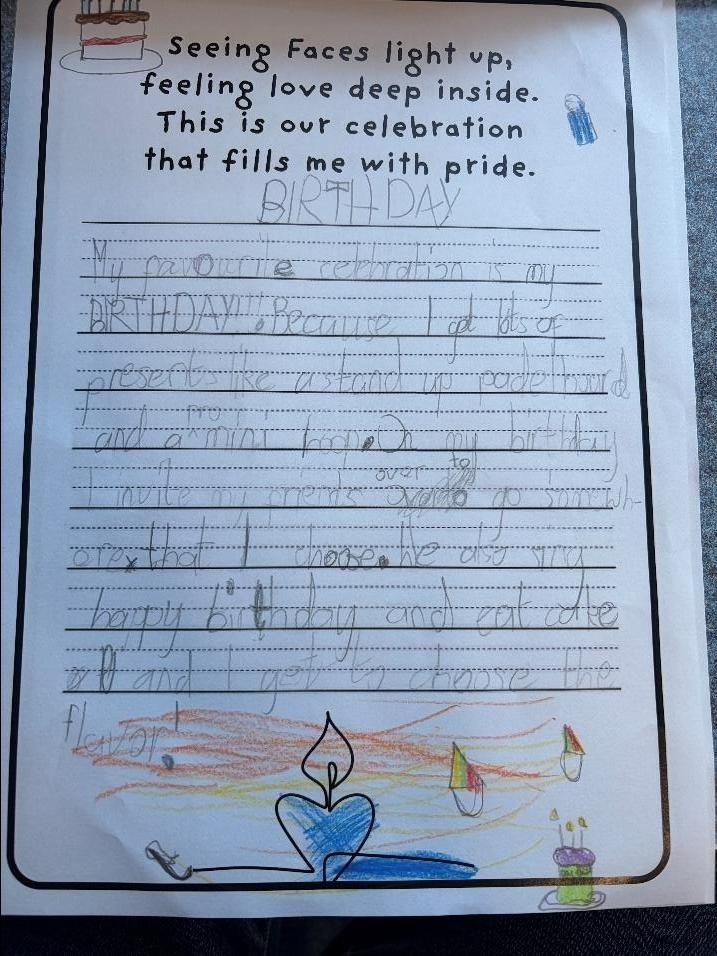 Seeing Faces light up,
feeling love deep inside.
This is our celebration
that fills me with pride.
BIRTHDAY
My favourite celebration is my
BIRTHDAY!!! Because I get lots of
presents like a stand up padelbourd
pro
and a ^ mini hoop. On my birthday
over to
I invite my friends go somewh-
ore that I choose. We also sing
happy birthday and eat cake
and I get to choose the
flavor!